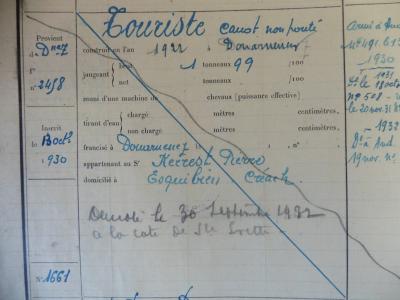 Touriste canot non ponté
Provient
de Dnez
f°
n° 2458
construit en l'an 1922 à Douarnenez
jaugeant brut 1 tonneaux 99 /100
net tonneaux /100
muni d'une machine de chevaux (puissance effective)
tirant d'eau chargé mètres centimètres,
non chargé mètres centimètres,
francisé à Douarnenez
appartenant au Sr Kerrest Pierre
domicilié à Esquibien Créach
Inscrit
le
1930
Démoli le 30 Septembre 1932
à la cote de Ste Evette
N° 1661
Armé à Aud.
n° 491
1930
1931
le 20 nov. 31
1932
Dé à Aud.
19 nov.